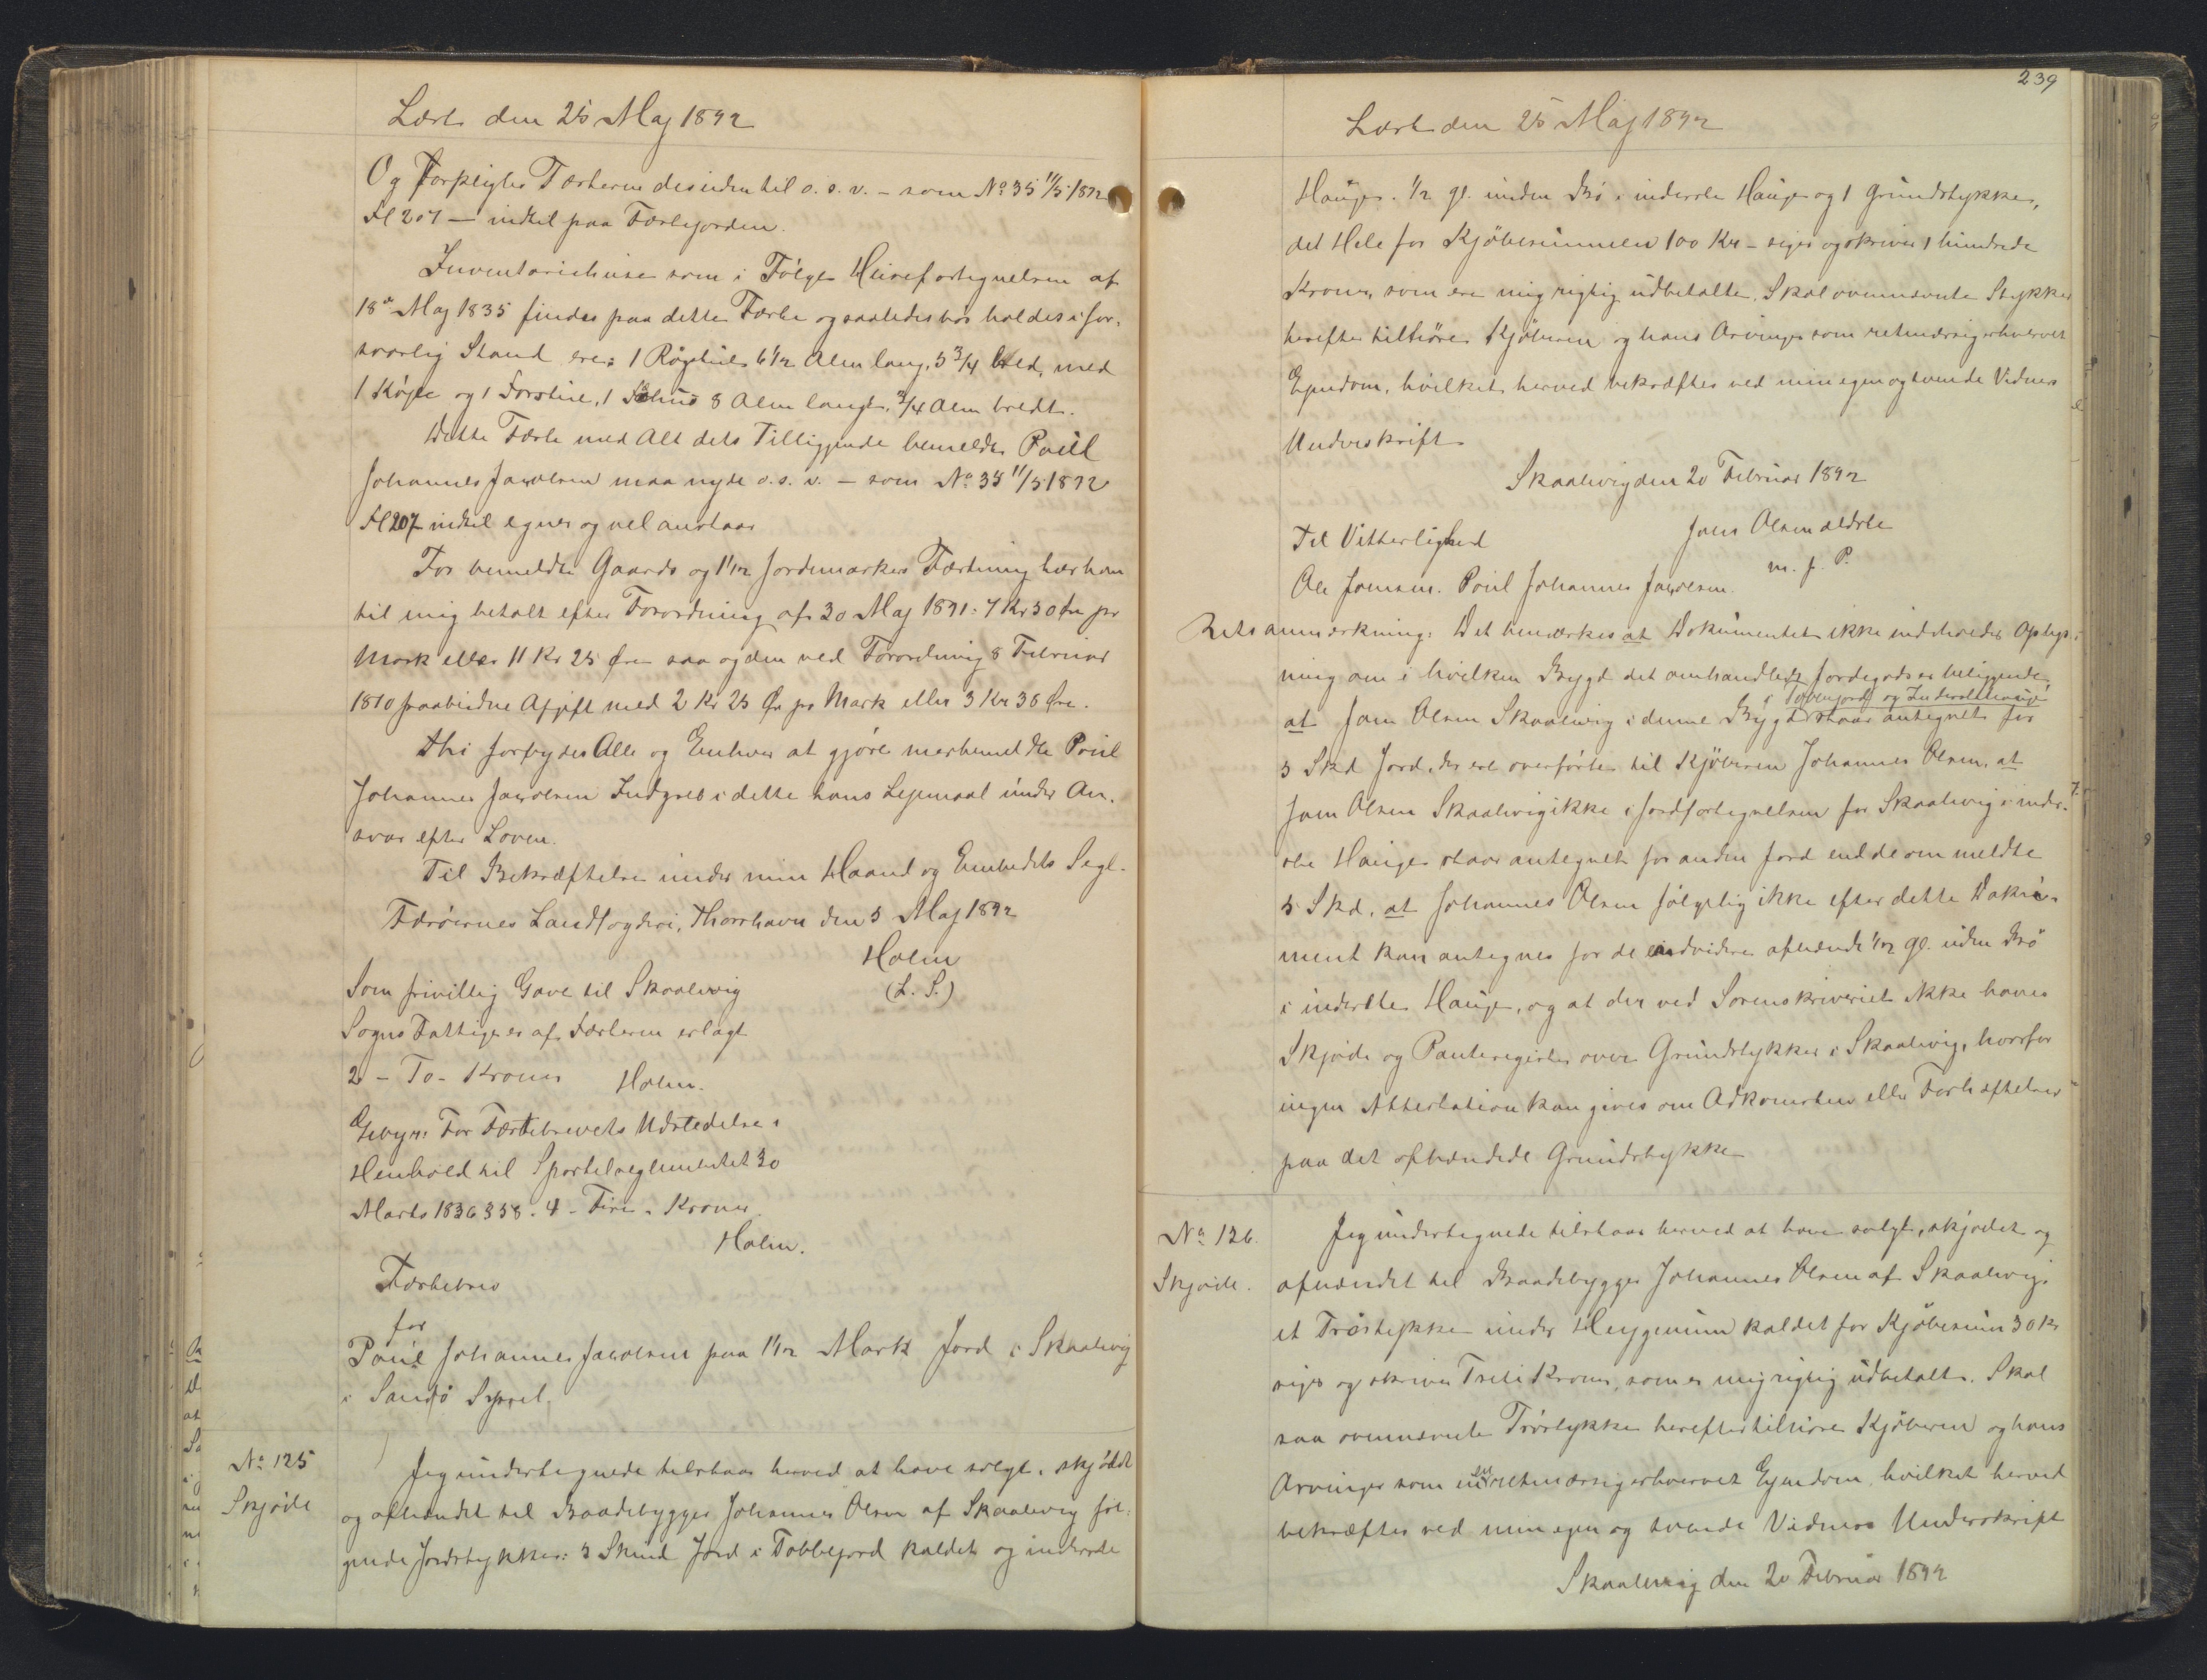 Læst den 25 Maj 1892
Og forpligtes Fæsteren desuden til o. s. v. – som No 35 11/5 1892
Fl 207 – indtil paa Fæstejorden.
Inventariehuse som i Følge Huusefortegnelsen af
18de Maj 1835 findes paa dette Fæste og saaledes bør holdes i for-
svarlig Stand ere: 1 Røgstue 6 1/2 Alen lang, 5 3/4 bred, med
1 Køje og 1 Forstue, 1 Fæhus 8 Alen langt, 3/4 Alen bredt.
Dette Fæste med Alt dets Tilliggende bemeldte Poul
Johannes Jacobsen maa nyde o. s. v. – som No 35 11/5 1892
Fl 207 indtil egner og vel anstaar
For bemeldte Gaards og 1 1/2 Jordemarkers Fæstning har han
til mig betalt efter Forordning af 30 Maj 1891: 7 Kr 50 Øre pr
Mark eller 11 Kr 25 Øre saa og den ved Forordning 8 Februar
1810 paabudne Afgift med 2 Kr 25 Øre pr Mark eller 3 Kr 38 Øre.
Thi forbydes Alle og Enhver at gjøre merbemeldte Poul
Johannes Jacobsen Indgreb i dette hans Lejemaal under An-
svar efter Loven.
Til Bekræftelse under min Haand og Embedets Segl.
Færøernes Landfogderi, Thorshavn den 5 Maj 1892
Holm
(L. S.)
Som frivillig Gave til Skaalevig
Sogns Fattige er af Fæsteren erlagt
2 – To – Kroner Holm.
Gebyr: For Fæstebrevets Udstedelse i
Henhold til Sportelreglementet 30
Marts 1836 § 58. 4 – Fire – Kroner.
Holm.
Fæstebrev
for
Poul Johannes Jacobsen paa 1 1/2 Mark Jord i Skaalevig
i Sandø Syssel.
No 125
Skjøde
Jeg undertegnede tilstaar herved at have solgt, skjødet
og afhændet til Baadebygger Johannes Olsen af Skaalevig føl-
gende Jordstykker: 5 Skind Jord i Tobbejord kaldet og inderste
239
Læst den 25 Maj 1892
Hauge. 1/2 gl. uden Bø i inderste Hauge og 1 Grundstykke,
det Hele for Kjøbesummen 100 Kr – siger og skriver 1 hundrede
Kroner, som ere mig rigtig udbetalte. Skal ovennævnte Stykker
herefter tilhøre Kjøberen og hans Arvinger som retmæssig erhvervet
Ejendom, hvilket herved bekræftes ved min egen og tvende Vidners
Underskrift
Skaalevig den 20 Februar 1892
Til Vitterlighed Joen Olsen ældste
Ole Joensen. Poul Johannes Jacobsen. m. f. P.
Retsanmærkning: Det bemærkes at Dokumentet ikke indeholder Oplys-
ning om i hvilken Bygd det omhandlede Jordegods er beliggende,
i Tobbejord og Inderstehauge
at Joen Olsen Skaalevig i denne Bygd staar antegnet for
5 Skd Jord, der ere overførte til Kjøberen Johannes Olsen, at
Joen Olsen Skaalevig ikke i Jordfortegnelsen for Skaalevig i inder-
ste Hauge staar antegnet for anden Jord end de ommeldte
5 Skd, at Johannes Olsen følgelig ikke efter dette Doku-
ment kan antegnes for de endvidere afhændede 1/2 gl. uden Bø
i inderste Hauge, og at der ved Sorenskriveriet ikke haves
Skjøde og Panteregister over Grundstykker i Skaalevig, hvorfor
ingen Attestation kan gives om Adkomsten eller Forhæftelser
paa det afhændede Grundstykke
No 126.
Skjøde.
Jeg undertegnede tilstaar herved at have solgt, skjødet og
afhændet til Baadebygger Johannes Olsen af Skaalevig
et Trøstykke under kaldet for Kjøbesum 30 Kr
siger og skriver Treti Kroner, som er mig rigtig udbetalt. Skal
saa ovennævnte Trøstykke herefter tilhøre Kjøberen og hans
Arvinger som en retmæssig erhvervet Ejendom, hvilket herved
bekræftes ved min egen og tvende Vidners Underskrift
Skaalevig den 20 Februar 1892